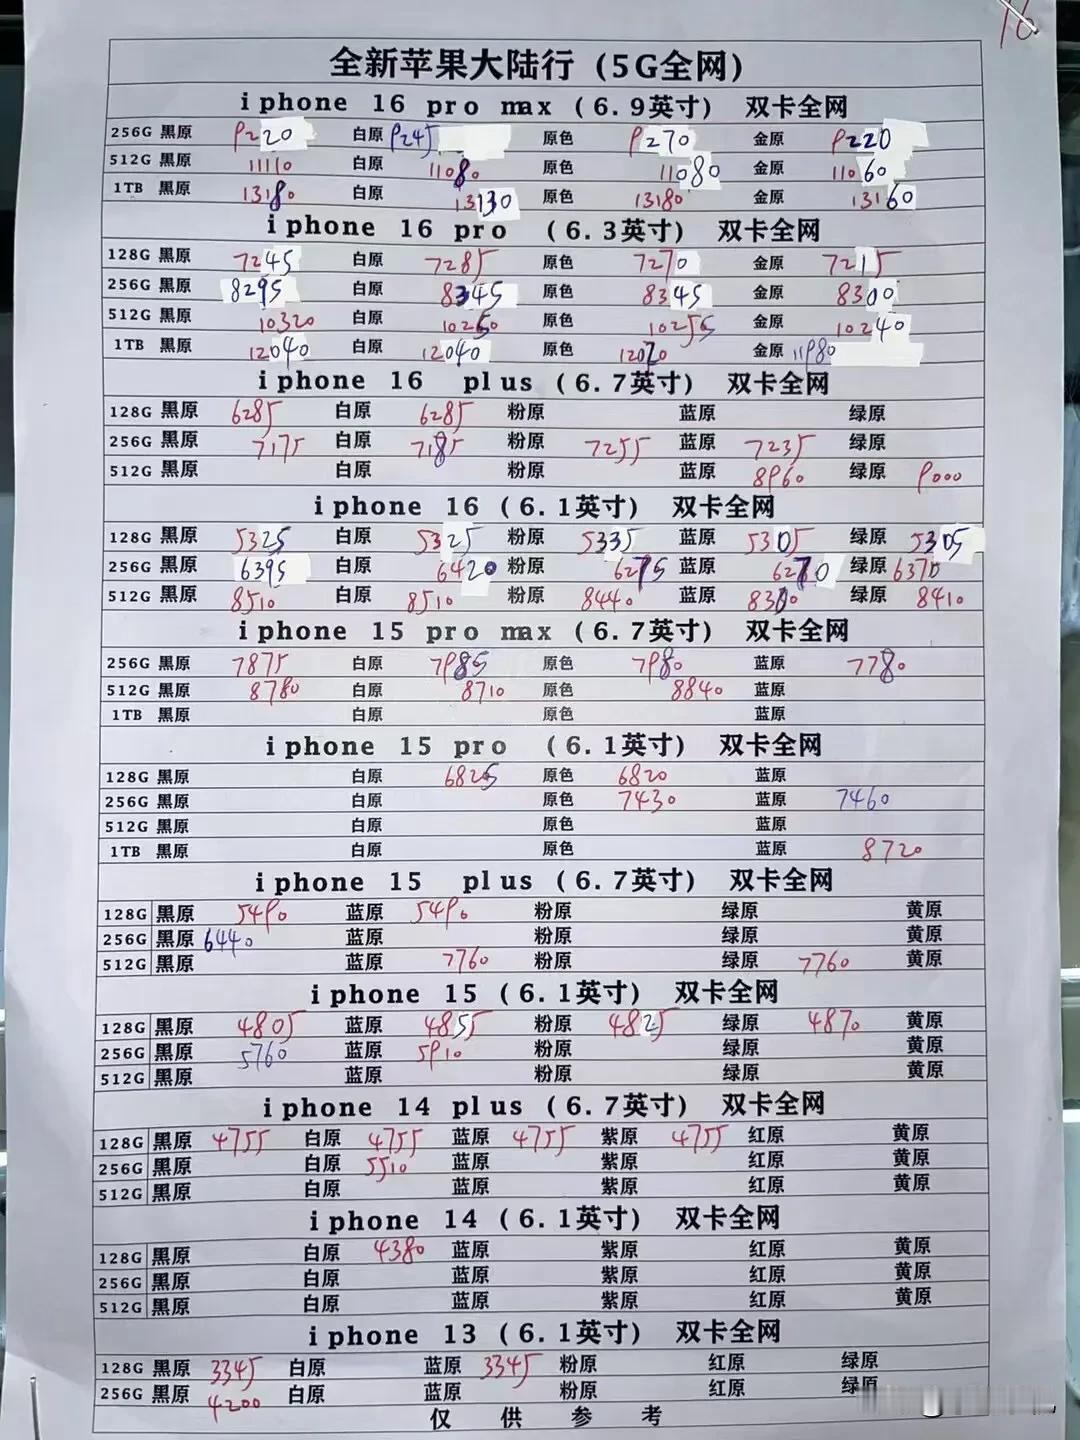 16
全新苹果大陆行（5G全网）
iphone 16 pro max（6.9英寸） 双卡全网
256G 黑原 9220 白原 9245 原色 9270 金原 9220
512G 黑原 11110 白原 11080 原色 11080 金原 11060
1TB 黑原 13180 白原 13130 原色 13180 金原 13160
iphone 16 pro （6.3英寸） 双卡全网
128G 黑原 7245 白原 7285 原色 7270 金原 7215
256G 黑原 8295 白原 8345 原色 8345 金原 8300
512G 黑原 10320 白原 10260 原色 10255 金原 10240
1TB 黑原 12040 白原 12040 原色 12020 金原 11980
iphone 16 plus（6.7英寸） 双卡全网
128G 黑原 6285 白原 6285 粉原 蓝原 绿原
256G 黑原 7175 白原 7185 粉原 7255 蓝原 7235 绿原
512G 黑原 白原 粉原 蓝原 8960 绿原 9000
iphone 16（6.1英寸） 双卡全网
128G 黑原 5325 白原 5325 粉原 5335 蓝原 5305 绿原 5305
256G 黑原 6395 白原 6420 粉原 6275 蓝原 6270 绿原 6370
512G 黑原 8510 白原 8510 粉原 8440 蓝原 8300 绿原 8410
iphone 15 pro max（6.7英寸） 双卡全网
256G 黑原 7875 白原 7985 原色 7980 蓝原 7780
512G 黑原 8780 白原 8710 原色 8840 蓝原
1TB 黑原 白原 原色 蓝原
iphone 15 pro （6.1英寸） 双卡全网
128G 黑原 白原 6825 原色 6820 蓝原
256G 黑原 白原 原色 7430 蓝原 7460
512G 黑原 白原 原色 蓝原
1TB 黑原 白原 原色 蓝原 8720
iphone 15 plus（6.7英寸） 双卡全网
128G 黑原 5490 蓝原 5490 粉原 绿原 黄原
256G 黑原 6440 蓝原 粉原 绿原 黄原
512G 黑原 蓝原 7760 粉原 绿原 7760 黄原
iphone 15（6.1英寸） 双卡全网
128G 黑原 4805 蓝原 4855 粉原 4825 绿原 4870 黄原
256G 黑原 5760 蓝原 5910 粉原 绿原 黄原
512G 黑原 蓝原 粉原 绿原 黄原
iphone 14 plus（6.7英寸） 双卡全网
128G 黑原 4755 白原 4755 蓝原 4755 紫原 4755 红原 黄原
256G 黑原 白原 5510 蓝原 紫原 红原 黄原
512G 黑原 白原 蓝原 紫原 红原 黄原
iphone 14（6.1英寸） 双卡全网
128G 黑原 白原 4380 蓝原 紫原 红原 黄原
256G 黑原 白原 蓝原 紫原 红原 黄原
512G 黑原 白原 蓝原 紫原 红原 黄原
iphone 13（6.1英寸） 双卡全网
128G 黑原 3345 白原 蓝原 3345 粉原 红原 绿原
256G 黑原 4200 白原 蓝原 粉原 红原 绿原
仅供参考